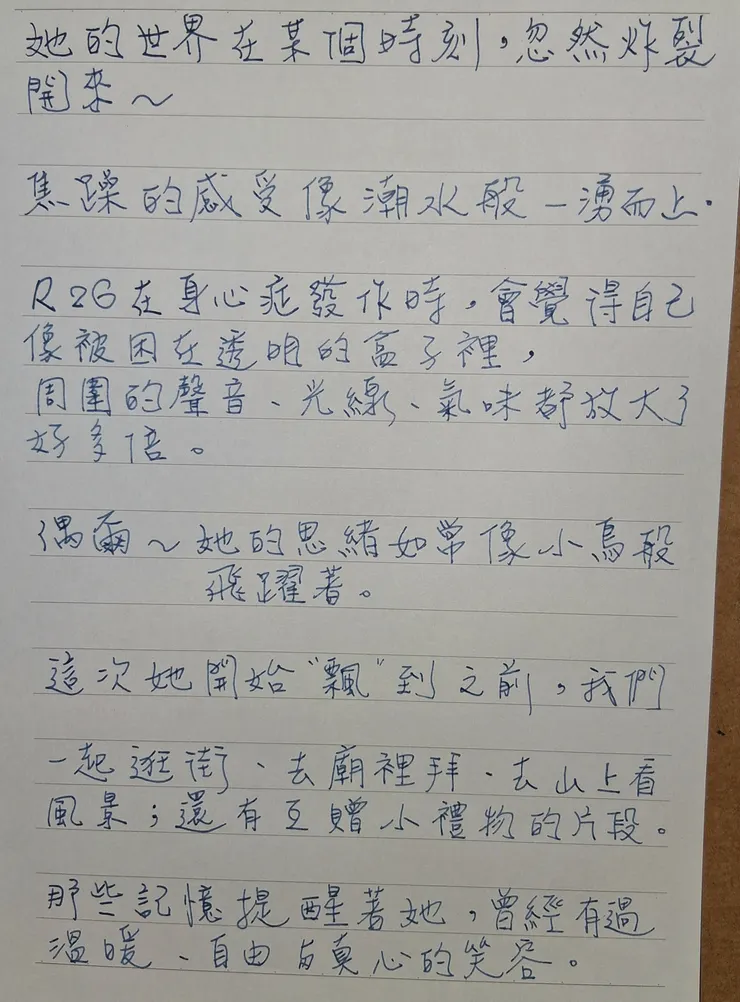 她的世界在某個時刻，忽然炸裂
開來～
焦躁的感受像潮水般一湧而上.
R26在身心症發作時，會覺得自己
像被困在透明的盒子裡，
周圍的聲音、光線、氣味都放大了
好多倍。
偶爾～她的思緒如常像小鳥般
飛躍著。
這次她開始“飄”到之前，我們
一起逛街、去廟裡拜、去山上看
風景；還有互贈小禮物的片段。
那些記憶提醒著她，曾經有過
溫暖、自由与真心的笑容。